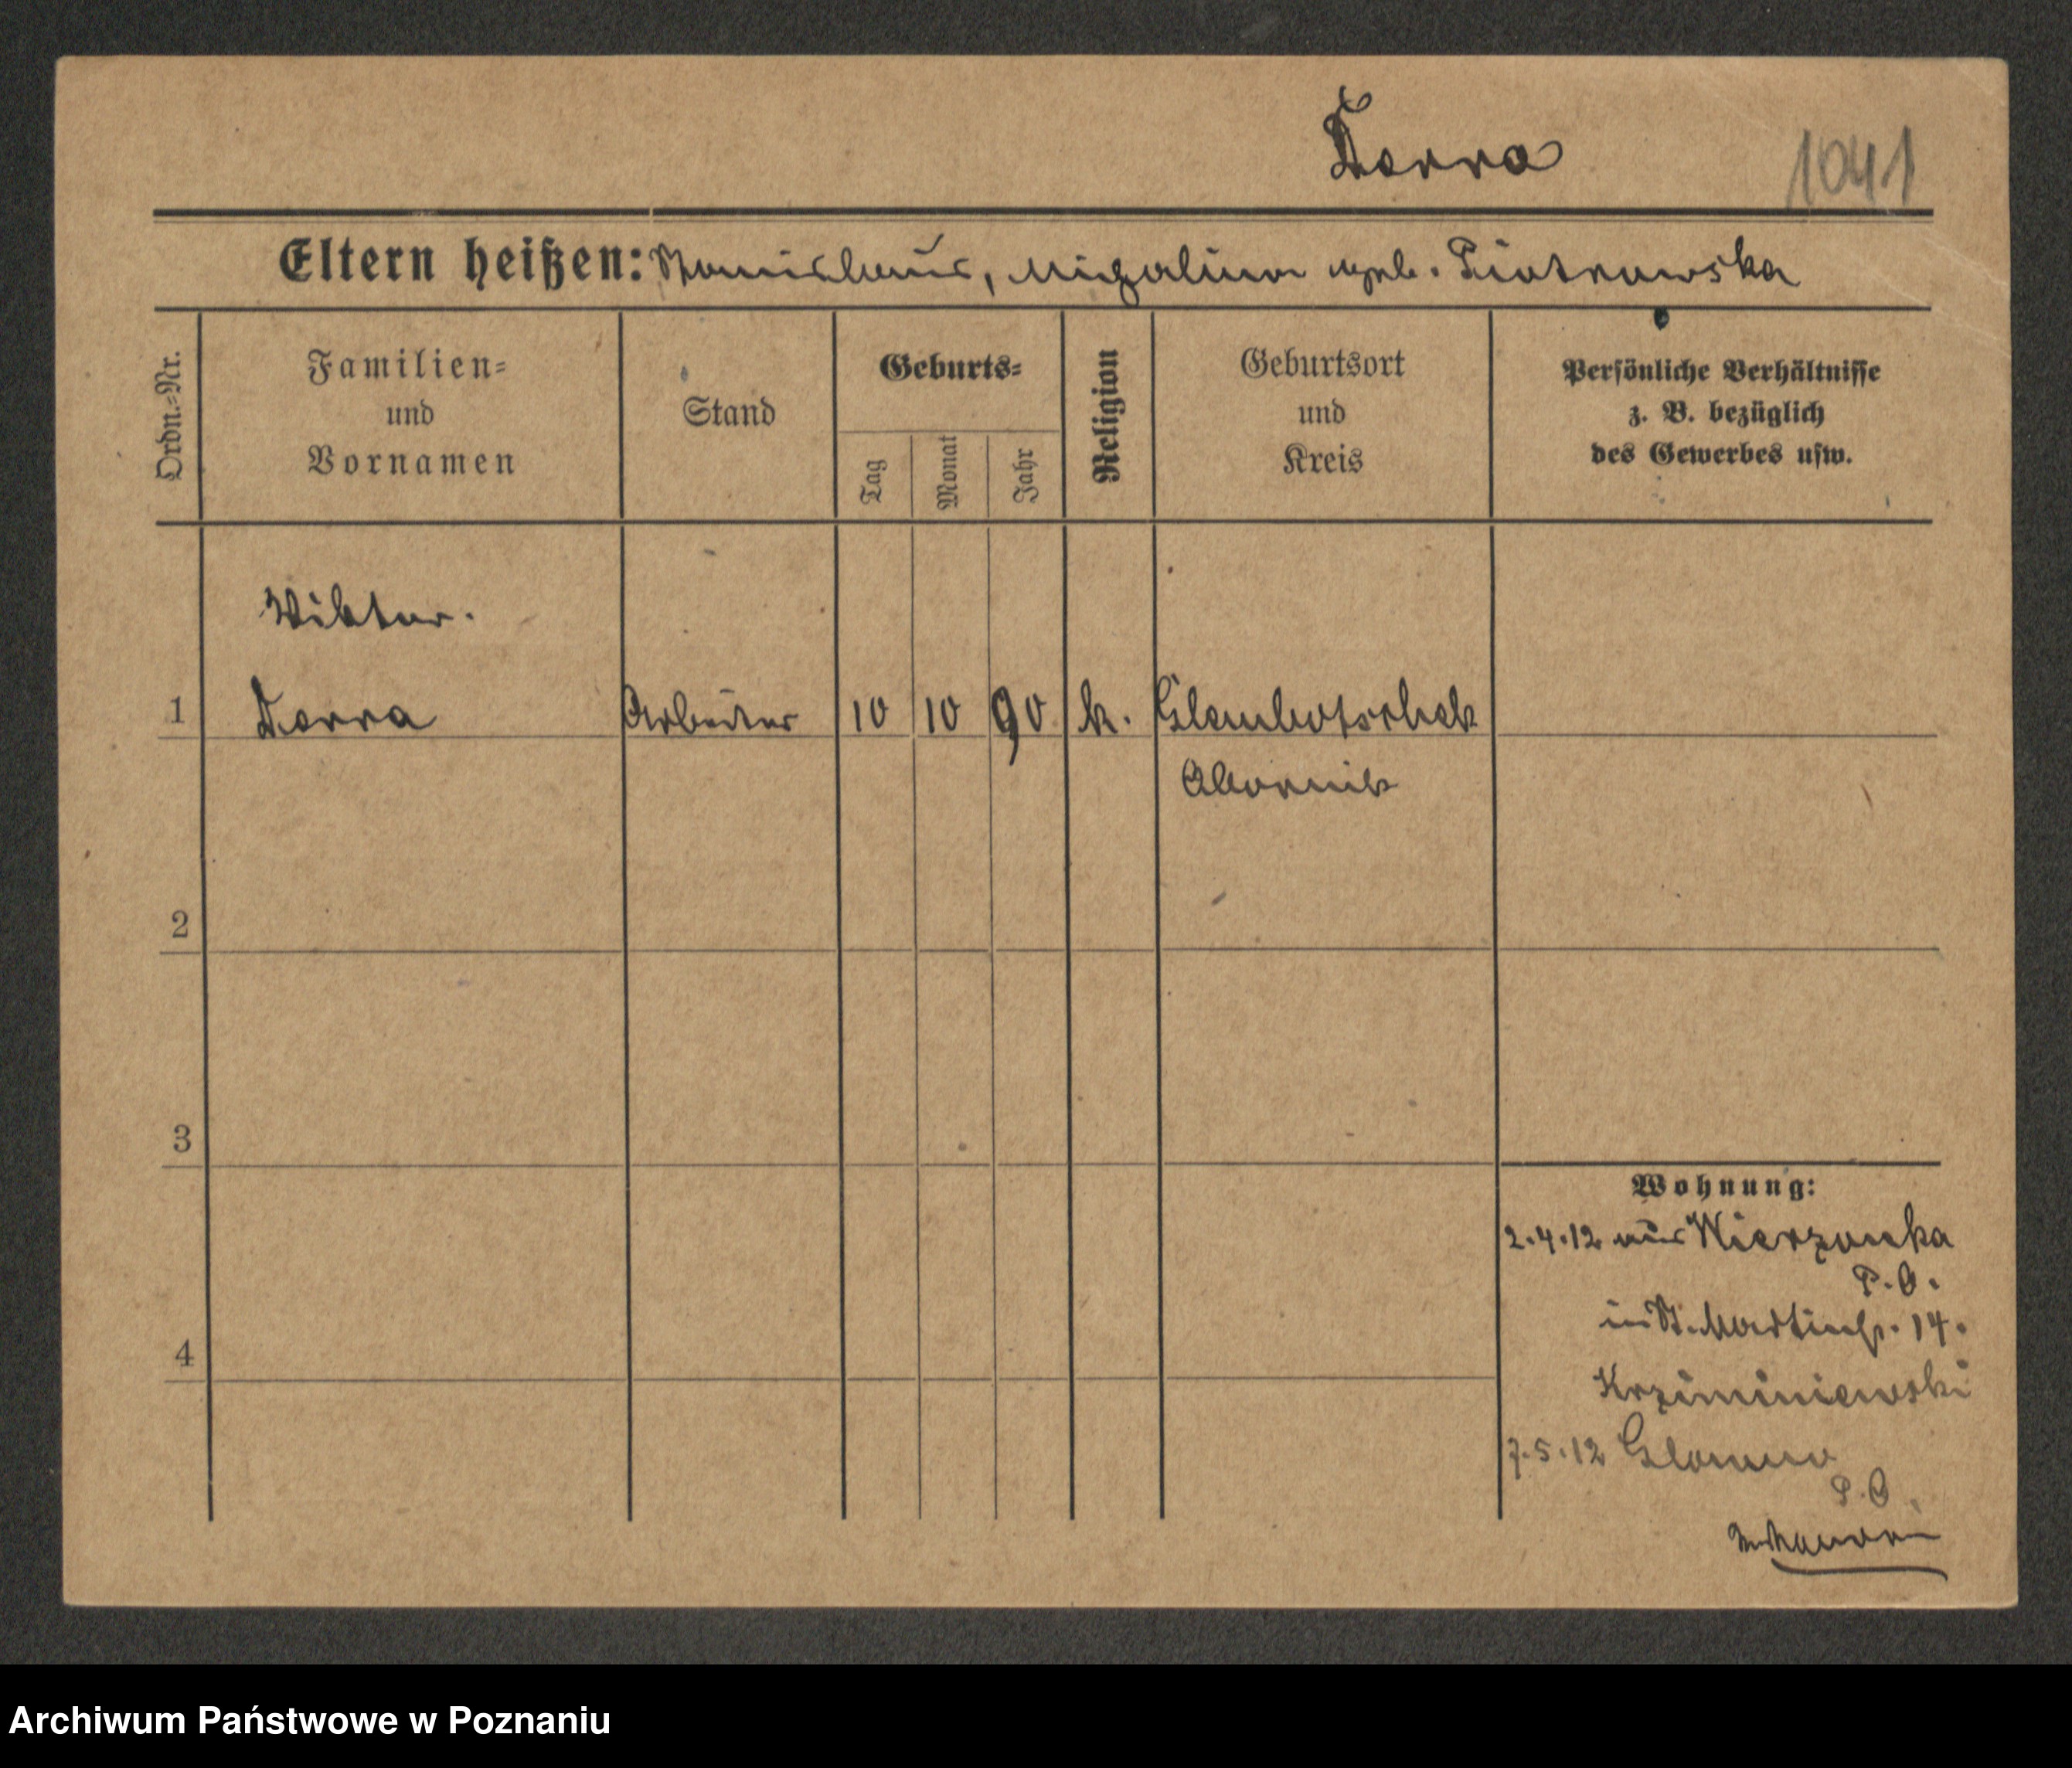 Dorra
1041
Eltern heißen: Stanislaus, Michalina geb. Piotrowska
Ordn.-Nr.
Familien-
und
Vornamen
Stand
Geburts-
Tag
Monat
Jahr
Religion
Geburtsort
und
Kreis
Persönliche Verhältnisse
z. B. bezüglich
des Gewerbes usw.
Viktor.
1 Dorra Arbeiter 10 10 90 k. Glembotschek
Obornik
2
3
4
Wohnung:
2.4.12 aus Wierzonka
P.O.
in St. Martinstr. 14.
Krziminiewski
7.5.12 Glowno
P.O.
Archiwum Państwowe w Poznaniu